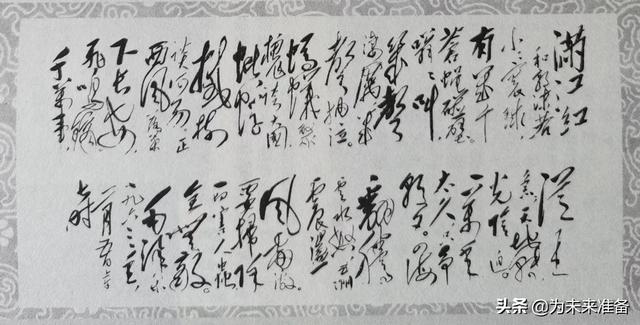 满江红
和郭沫若
小小寰球
有几个
苍蝇碰壁。
嗡嗡叫
几声
凄厉几
声抽泣。
蚂蚁缘
槐夸大国
蚍蜉
撼树
谈何易 正
西风落叶
下长安
飞鸣镝
千万事
从来
急 天地转
光阴迫。
一万年
太久 只争
朝夕。四海
翻腾
云水怒 五洲
震荡
风雷激。
要扫除
一切害人虫
全无敌。
毛泽东
一九六三年
头条 @为未来准备